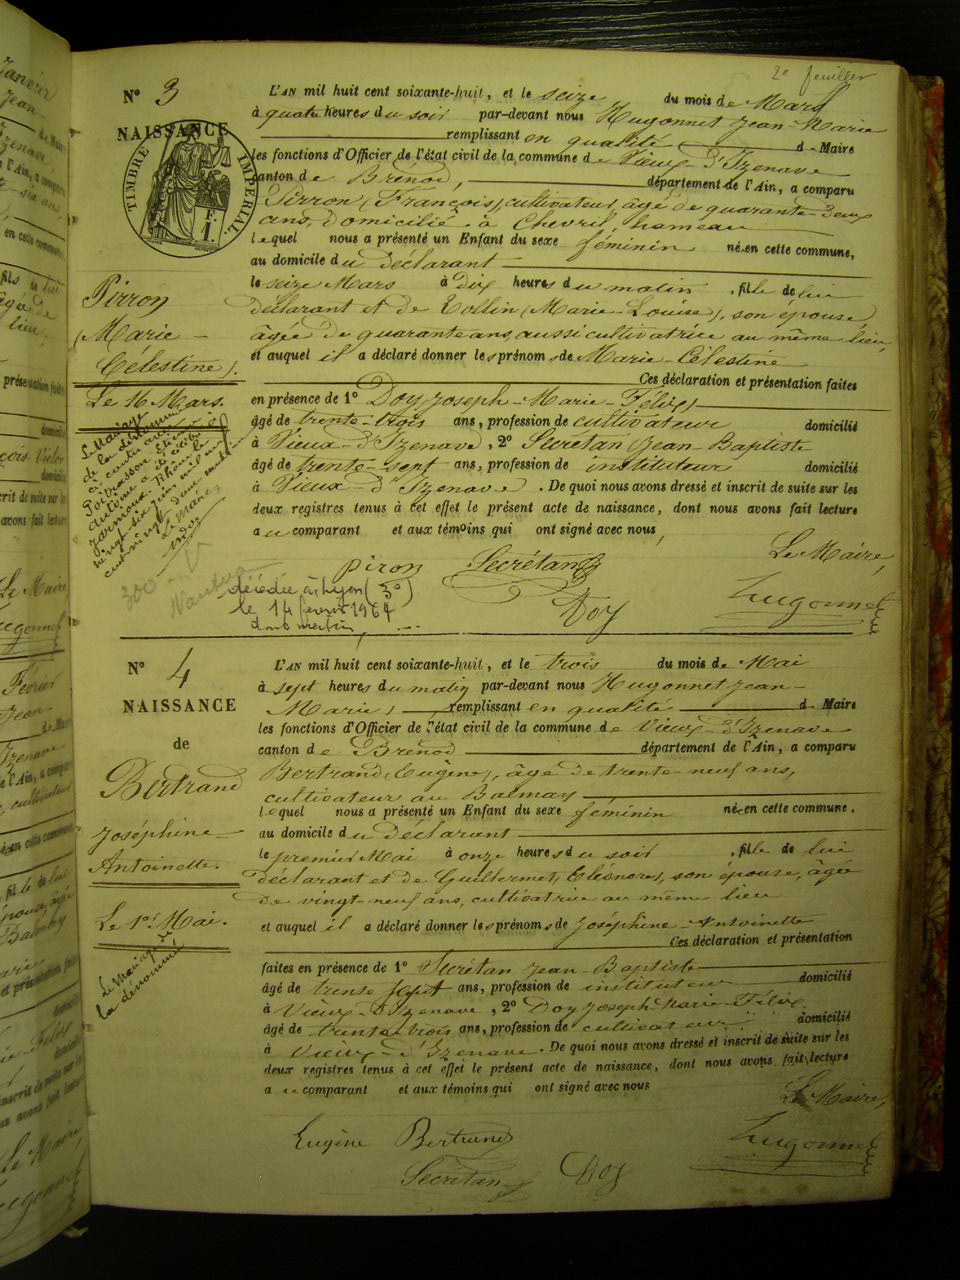 2e feuillet
N° 3
NAISSANCE
TIMBRE IMPERIAL
Pirron
(Marie-
Célestine).
Le 16 Mars.
L'AN mil huit cent soixante-huit, et le seize du mois de Mars
à quatre heures du soir par-devant nous Hugonnet Jean-Marie
remplissant en qualité d Maire
les fonctions d'Officier de l'état civil de la commune de Vieux-d'Izenave
canton de Brénod, département de l'Ain, a comparu
Pirron (François), cultivateur, âgé de quarante-deux
ans, domicilié à Chevril, hameau
lequel nous a présenté un Enfant du sexe féminin né en cette commune,
au domicile du déclarant
le seize Mars à dix heures du matin, fille de lui
déclarant et de Tollin (Marie-Louise), son épouse,
âgée de quarante ans, aussi cultivatrice au même lieu,
et auquel il a déclaré donner les prénoms de Marie-Célestine
Ces déclaration et présentation faites
en présence de 1° Doy Joseph-Marie-Félix,
âgé de trente-trois ans, profession de cultivateur domicilié
à Vieux-d'Izenave, 2° Secrétan Jean-Baptiste
âgé de trente-sept ans, profession de instituteur domicilié
à Vieux-d'Izenave. De quoi nous avons dressé et inscrit de suite sur les
deux registres tenus à cet effet le présent acte de naissance, dont nous avons fait lecture
au comparant et aux témoins qui ont signé avec nous,
Le Maire,
piron Secrétan
Doy Hugonnet
Le Mariage
de la dénommée
décédée à Lyon (3e)
le 14 février 1964
N° 4
NAISSANCE
de
Bertrand
Joséphine-
Antoinette.
Le 1er Mai.
Le Mariage de
la dénommé
L'AN mil huit cent soixante-huit, et le trois du mois de Mai
à sept heures du matin par-devant nous Hugonnet Jean-
Marie, remplissant en qualité d Maire
les fonctions d'Officier de l'état civil de la commune de Vieux-d'Izenave
canton de Brénod département de l'Ain, a comparu
Bertrand (Eugène), âgé de trente-neuf ans,
cultivateur au Balmay,
lequel nous a présenté un Enfant du sexe féminin né en cette commune,
au domicile du déclarant
le premier Mai à onze heures du soir, fille de lui
déclarant et de Guillermet (Eléonore), son épouse, âgée
de vingt-neuf ans, cultivatrice au même lieu
et auquel il a déclaré donner les prénoms de Joséphine-Antoinette
Ces déclaration et présentation
faites en présence de 1° Secrétan Jean-Baptiste
âgé de trente sept ans, profession de instituteur domicilié
à Vieux-d'Izenave, 2° Doy Joseph-Marie-Félix
âgé de trente-trois ans, profession de cultivateur domicilié
à Vieux-d'Izenave. De quoi nous avons dressé et inscrit de suite sur les
deux registres tenus à cet effet le présent acte de naissance, dont nous avons fait lecture
au comparant et aux témoins qui ont signé avec nous
Le Maire,
Eugène Bertrand Hugonnet
Secrétan Doy